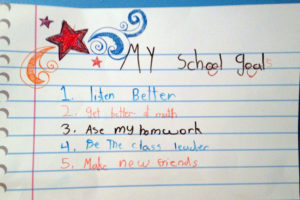 My School goals
1. listen Better
2. get better at math
3. Ase my homwork
4. Be The class leader
5. Make new friends